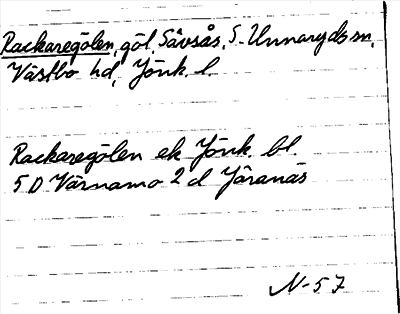 Rackaregölen, göl, Sävsås, S. Unnaryds sn,
Västbo hd, Jönk. l.
Rackaregölen ek Jönk. bl.
5 D Värnamo 2 d Järanäs
N-57